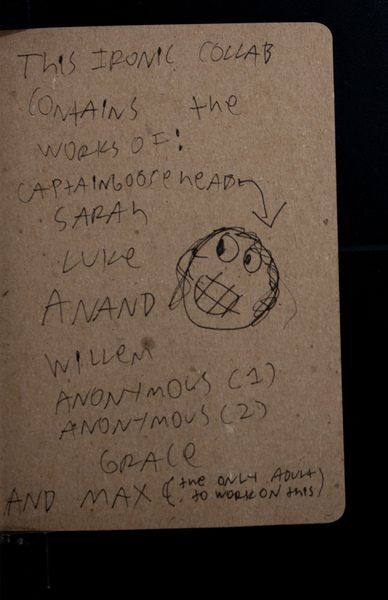 This IRONIC COLLAB
CONTAINS the
WORKS OF:
CAPTAINGOOSEHEADY
SARAh
LUKe
ANAND
WILLEM
ANONYMOUS (1)
ANONYMOUS (2)
GRACE
AND MAX (the ONLY ADULT
to WORK ON this)